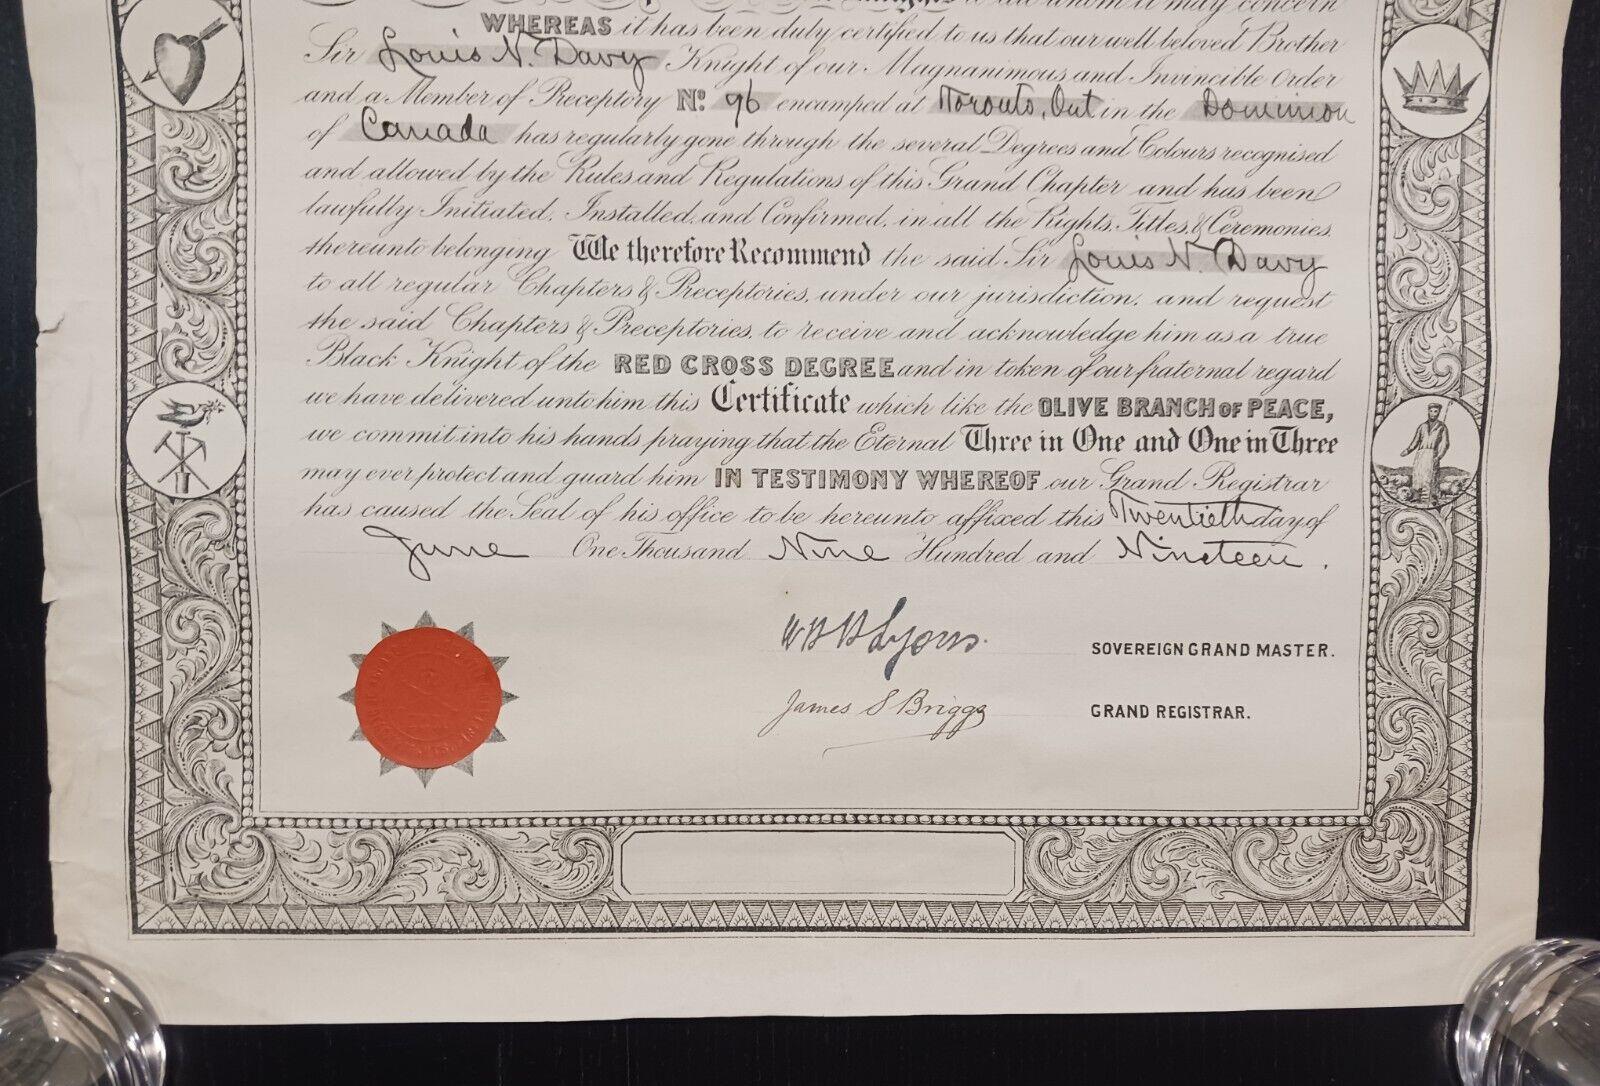 to all whom it may concern
WHEREAS it has been duly certified to us that our well beloved Brother
Sir Louis N. Davy Knight of our Magnanimous and Invincible Order
and a Member of Preceptory No. 96 encamped at Toronto, Ont in the Dominion
of Canada has regularly gone through the several Degrees and Colours recognised
and allowed by the Rules and Regulations of this Grand Chapter and has been
lawfully Initiated, Installed, and Confirmed, in all the Rights, Titles, & Ceremonies,
thereunto belonging We therefore Recommend the said Sir Louis N. Davy
to all regular Chapters & Preceptories, under our jurisdiction, and request
the said Chapters & Preceptories, to receive and acknowledge him as a true
Black Knight of the RED CROSS DEGREE and in token of our fraternal regard
we have delivered unto him this Certificate which like the OLIVE BRANCH OF PEACE,
we commit into his hands praying that the Eternal Three in One and One in Three
may ever protect and guard him IN TESTIMONY WHEREOF our Grand Registrar
has caused the Seal of his office to be hereunto affixed this Twentieth day of
June One Thousand Nine Hundred and Nineteen.
Lyons. SOVEREIGN GRAND MASTER.
James S Briggs GRAND REGISTRAR.